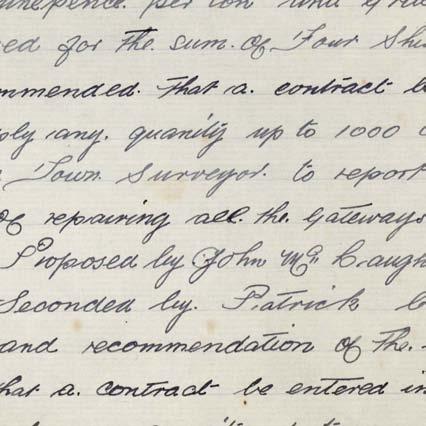 per ton and
ed for the sum of Four Shi
mmended. that a. contract b
ply any. quantity up to 1000
Town Surveyor. to report
of repairing all. the Gateways
Proposed by John Mc Laugh
Seconded by. Patrick
and recommendation of The.
hat a. contract be entered in